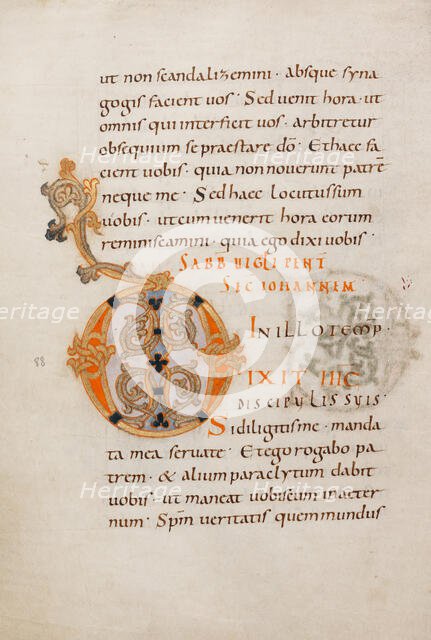 ut non scandalizemini · absque syna
gogis facient uos · Sed uenit hora · ut
omnis qui interficit uos · arbitretur
obsequium se praestare dō · Et haec fa
cient uobis · quia non nouerunt patrē
neque me · Sed haec locutus sum
uobis · ut cum uenerit hora eorum
reminiscamini · quia ego dixi uobis ·
SABB UIGL PENT
SEC IOHANNEM
IN ILLO TEMP
DIXIT IHC
DISCIPULIS SUIS ·
88
Si diligitis me · manda
ta mea seruate · Et ego rogabo pa
trem · & alium paraclytum dabit
uobis · ut maneat uobiscum in aeter
num · Spm̄ ueritatis quem mundus
Heritage
Heritage
Heritage
Heritage
Heritage
Heritage